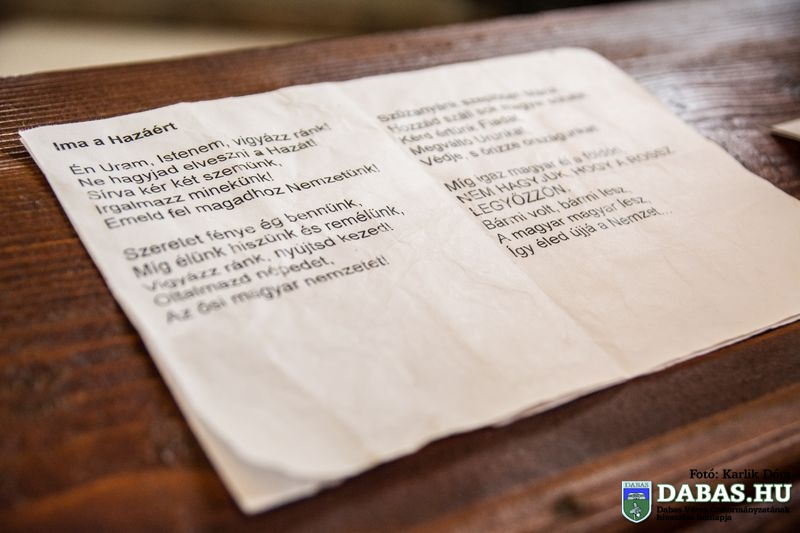 Ima a Hazáért
Én Uram, Istenem, vigyázz ránk!
Ne hagyjad elveszni a Hazát!
Sírva kér két szemünk,
Irgalmazz minekünk!
Emeld fel magadhoz Nemzetünk!
Szeretet fénye ég bennünk,
Míg élünk hiszünk és remélünk,
Vigyázz ránk, nyújtsd kezed!
Oltalmazd népedet,
Az ősi magyar nemzetet!
Hozzád száll sok magyar
Kérd értünk Fiadat
Megváltó Urunkat
Védje, s őrizze országunkat
Míg igaz magyar él a földön,
NEM HAGYJUK, HOGY A ROSSZ
LEGYŐZZÖN,
Bármi volt, bármi lesz,
A magyar magyar lesz,
Így éled újjá a Nemzet...
Fotó: Karlik Dóra
DABAS
DABAS.HU
Dabas Város Önkormányzatának
hivatalos honlapja